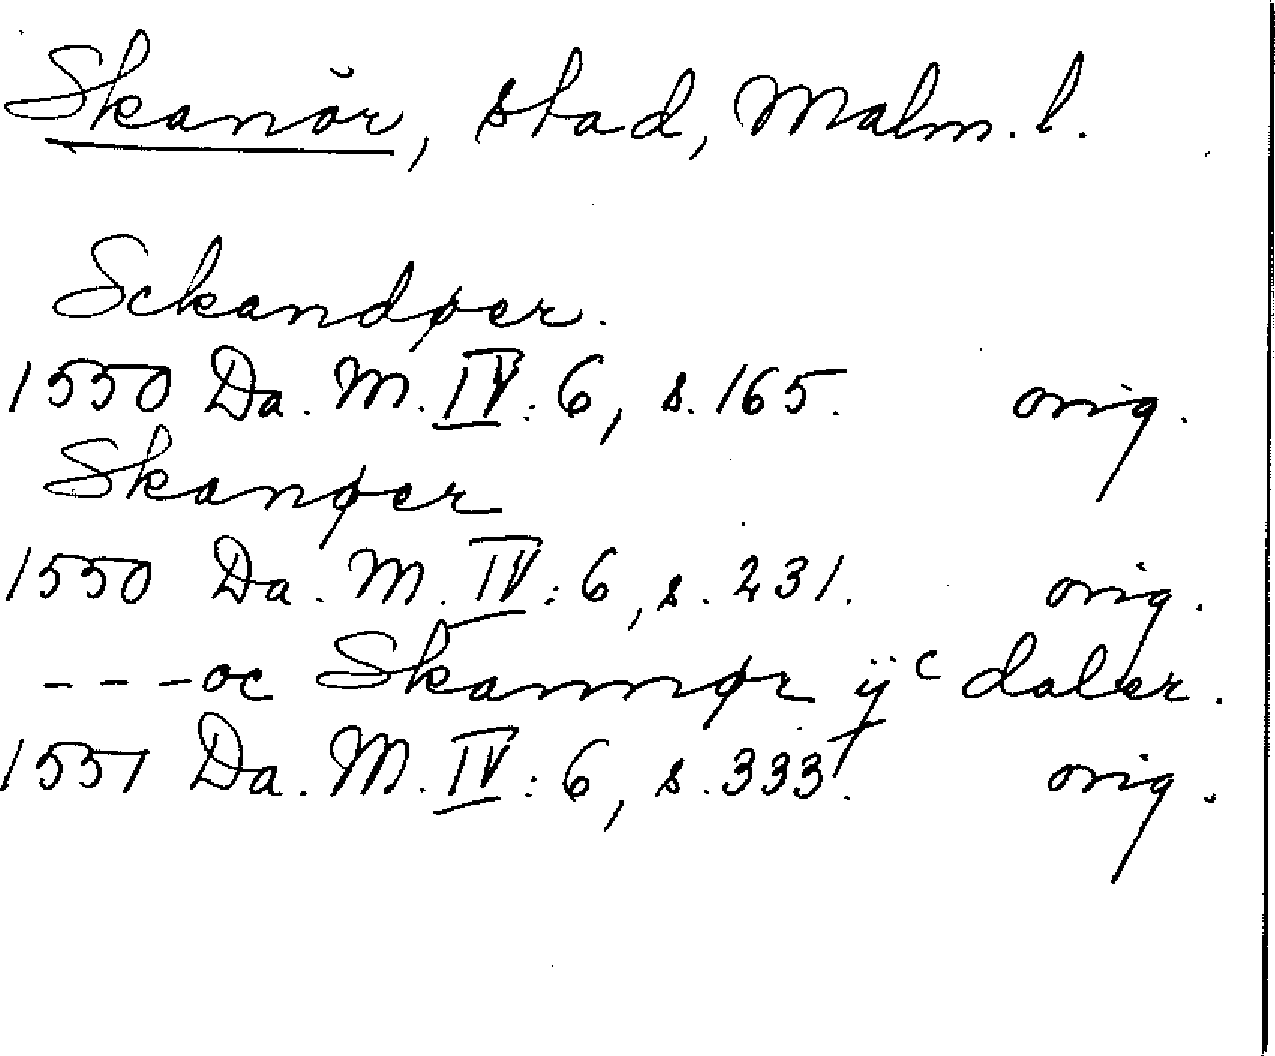 Skanör, stad, Malm. l.
Sckandøer.
1550 Da. M. IV: 6, s. 165. orig.
Skanøer
1550 Da. M. IV: 6, s. 231. orig.
--- oc Skannør ijᶜ daler.
1551 Da. M. IV: 6, s. 333. orig.